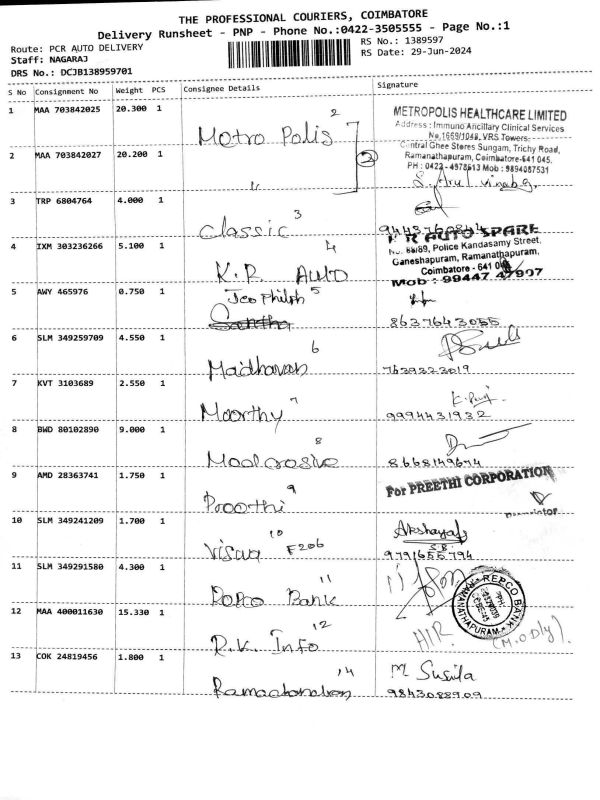 THE PROFESSIONAL COURIERS, COIMBATORE
Delivery Runsheet - PNP - Phone No.:0422-3505555 - Page No.:1
Route: PCR AUTO DELIVERY
RS No.: 1389597
Staff: NAGARAJ
RS Date: 29-Jun-2024
DRS No.: DCJB138959701
S No Consignment No Weight PCS Consignee Details Signature
1 MAA 703842025 20.300 1 Motro Polis 2
METROPOLIS HEALTHCARE LIMITED
Address : Immuno Ancillary Clinical Services
No.1669/1048, VRS Towers,
Central Ghee Stores Sungam, Trichy Road,
Ramanathapuram, Coimbatore-641 045.
PH : 0422-4978613 Mob : 9894087531
2 MAA 703842027 20.200 1 " 2
3 TRP 6804764 4.000 1 Classic 3
9443760844
4 IXM 303236266 5.100 1 K.R. AUTO 4
K R AUTO SPARE
No. 88/89, Police Kandasamy Street,
Ganeshapuram, Ramanathapuram,
Coimbatore - 641 0
Mob : 99447 47907
5 AWY 465976 0.750 1 5
8637643055
6 SLM 349259709 4.550 1 Madhavan 6
7639323019
7 KVT 3103689 2.550 1 Moorthy 7
9994431932
8 BWD 80102890 9.000 1 8
8668149674
9 AMD 28363741 1.750 1 Proothi 9
For PREETHI CORPORATION
10 SLM 349241209 1.700 1 F206 10
Akshaya
S.B.
9791655794
11 SLM 349291580 4.300 1 Repco Bank 11
REPCO BANK
RAMANATHAPURAM
12 MAA 400011630 15.330 1 R.K. Info 12
(M.O Dly).
13 COK 24819456 1.800 1 Ramachandran 14
M Susila
9843088909